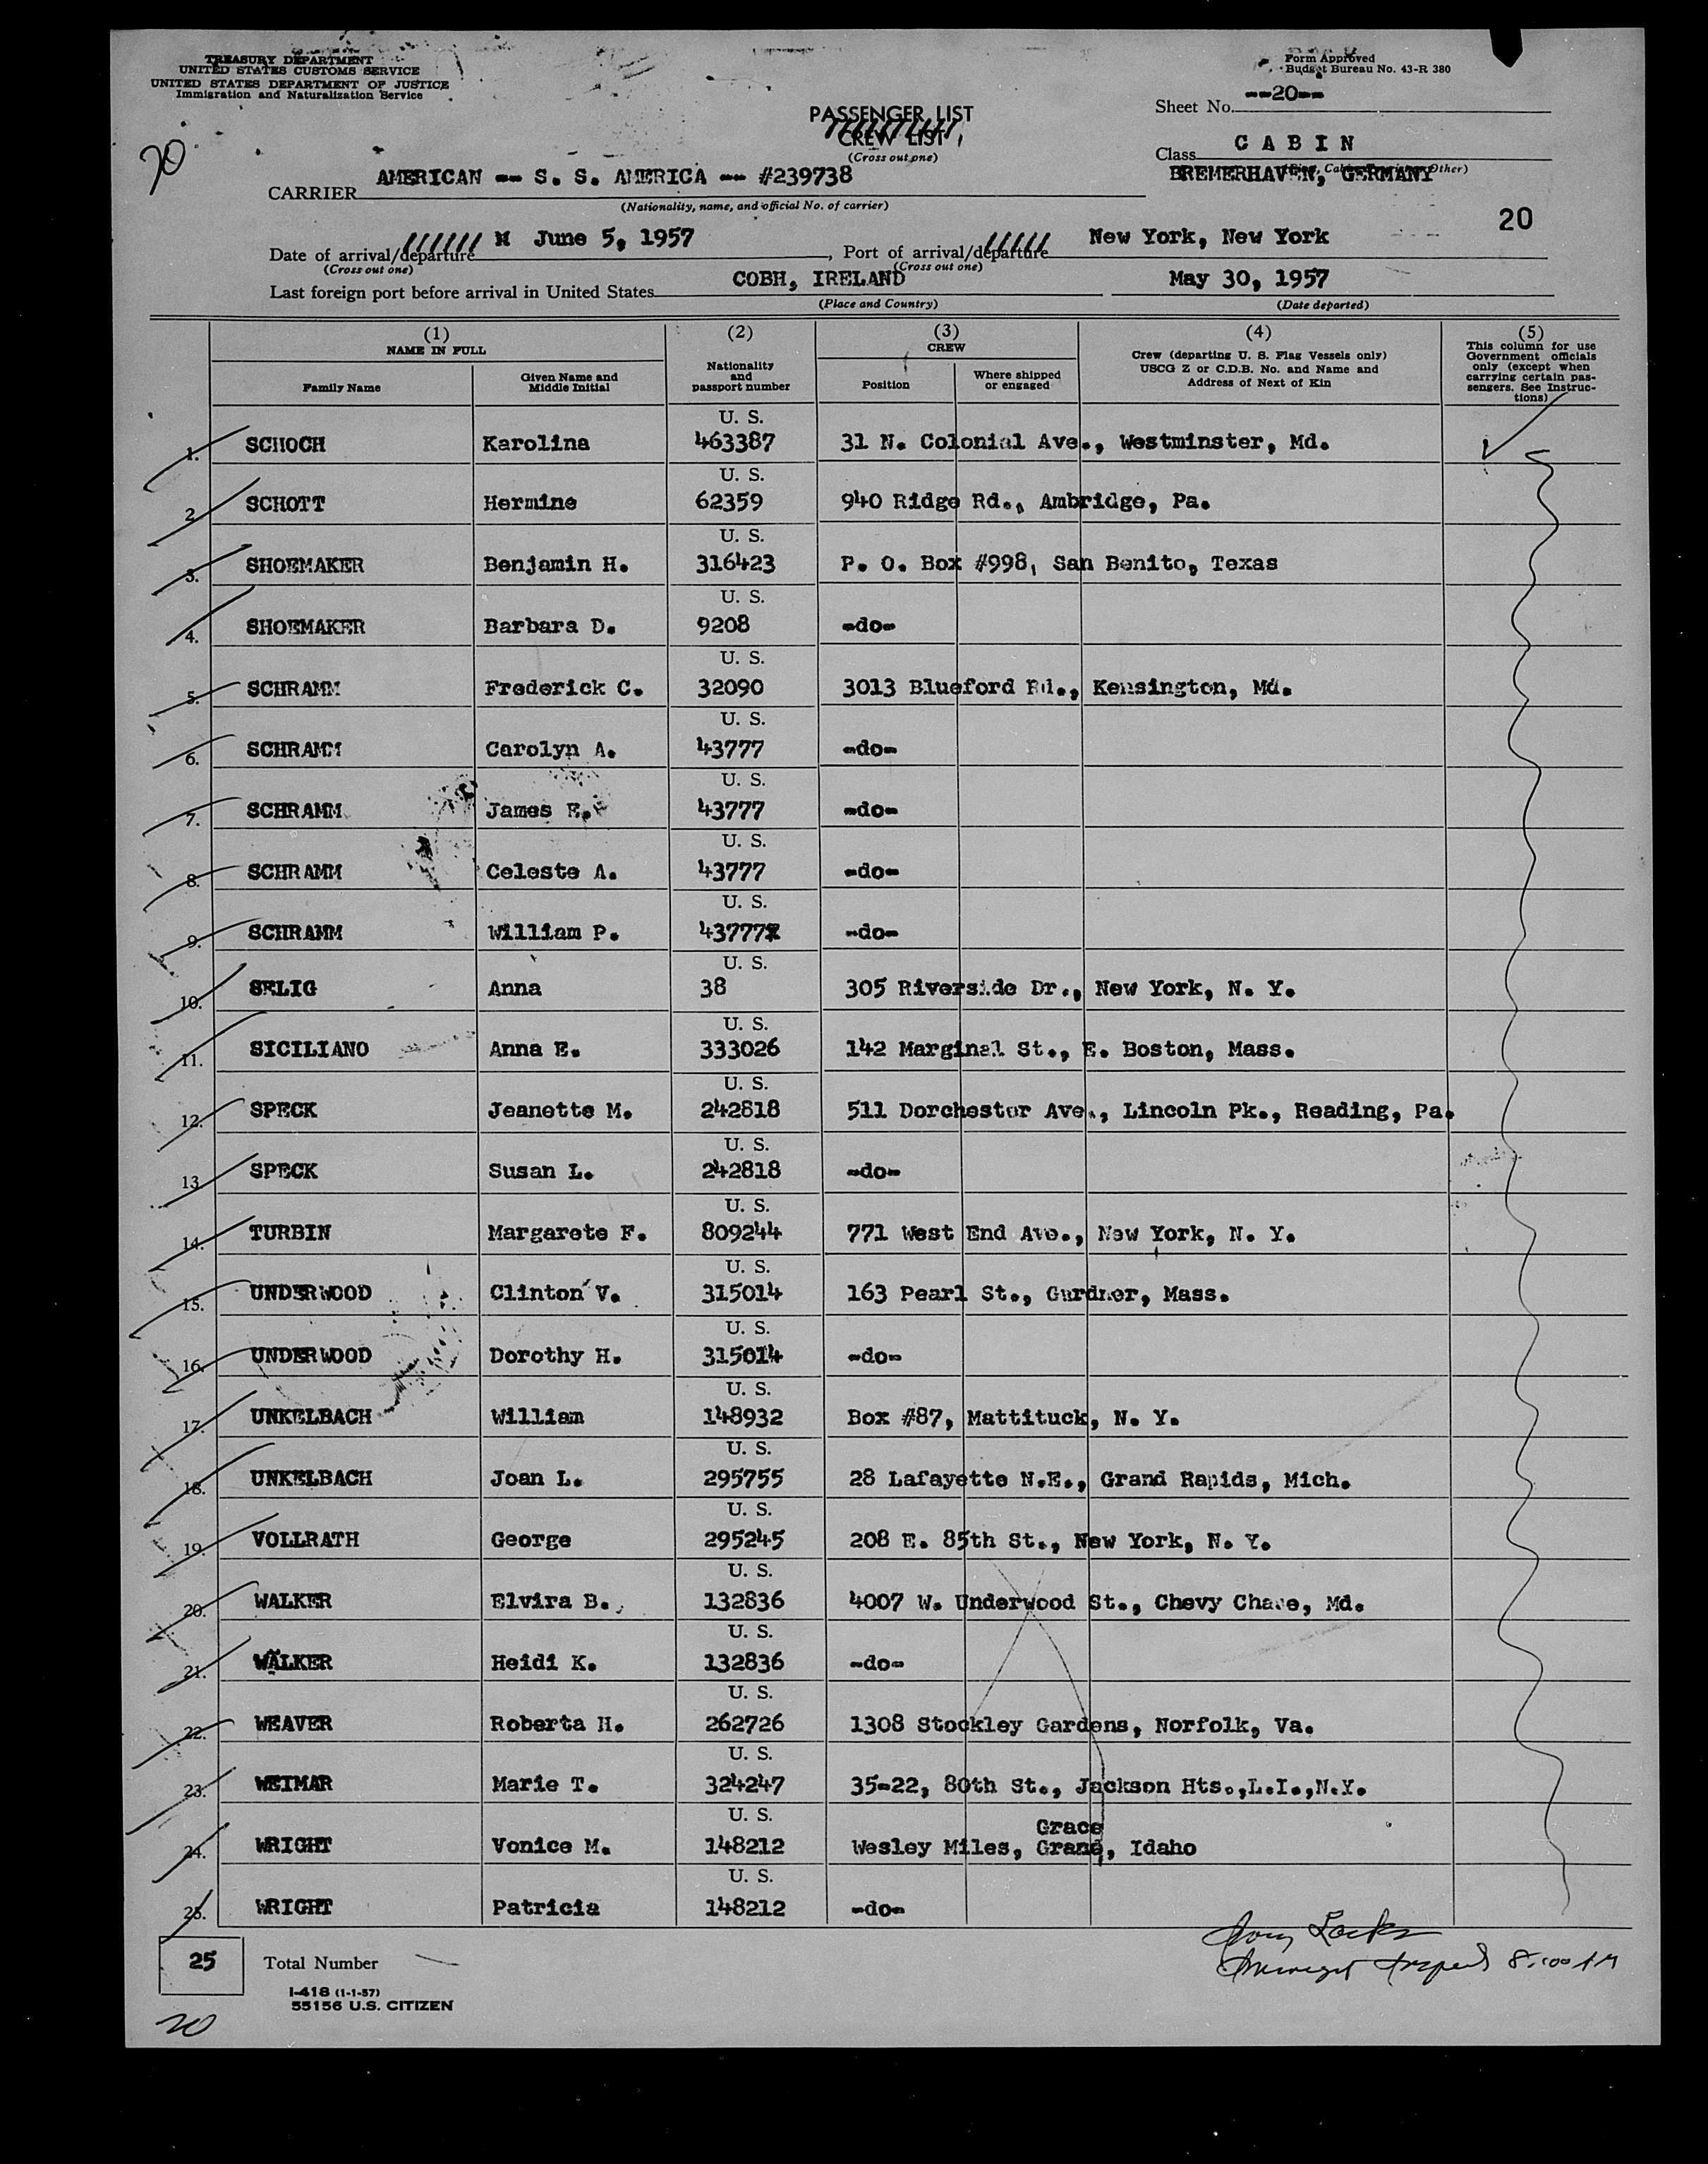 TREASURY DEPARTMENT
UNITED STATES CUSTOMS SERVICE
UNITED STATES DEPARTMENT OF JUSTICE
Immigration and Naturalization Service
Form Approved
Budget Bureau No. 43-R 380
Sheet No. --20--
PASSENGER LIST
CREW LIST
(Cross out one)
Class C A B I N
20
CARRIER AMERICAN -- S. S. AMERICA -- #239738
BREMERHAVEN, GERMANY
(Nationality, name, and official No. of carrier)
20
Date of arrival/departure M June 5, 1957, Port of arrival/departure New York, New York
(Cross out one) (Cross out one)
Last foreign port before arrival in United States COBH, IRELAND May 30, 1957
(Place and Country) (Date departed)
(1) (2) (3) (4) (5)
NAME IN FULL
Family Name
Given Name and Middle Initial
Nationality and passport number
CREW
Position
Where shipped or engaged
Crew (departing U. S. Flag Vessels only)
USCG Z or C.D.B. No. and Name and
Address of Next of Kin
This column for use
Government officials
only (except when
carrying certain pas-
sengers. See Instruc-
tions)
U. S.
1. SCHOCH Karolina 463387 31 N. Colonial Ave., Westminster, Md.
U. S.
2. SCHOTT Hermine 62359 940 Ridge Rd., Ambridge, Pa.
U. S.
3. SHOEMAKER Benjamin H. 316423 P. O. Box #998, San Benito, Texas
U. S.
4. SHOEMAKER Barbara D. 9208 -do-
U. S.
5. SCHRAMM Frederick C. 32090 3013 Blueford Rd., Kensington, Md.
U. S.
6. SCHRAMM Carolyn A. 43777 -do-
U. S.
7. SCHRAMM James E. 43777 -do-
U. S.
8. SCHRAMM Celeste A. 43777 -do-
U. S.
9. SCHRAMM William P. 43777 -do-
U. S.
10. SELIG Anna 38 305 Riverside Dr., New York, N. Y.
U. S.
11. SICILIANO Anna E. 333026 142 Marginal St., E. Boston, Mass.
U. S.
12. SPECK Jeanette M. 242818 511 Dorchester Ave., Lincoln Pk., Reading, Pa.
U. S.
13. SPECK Susan L. 242818 -do-
U. S.
14. TURBIN Margarete F. 809244 771 West End Ave., New York, N. Y.
U. S.
15. UNDERWOOD Clinton V. 315014 163 Pearl St., Gardner, Mass.
U. S.
16. UNDERWOOD Dorothy H. 315014 -do-
U. S.
17. UNKELBACH William 148932 Box #87, Mattituck, N. Y.
U. S.
18. UNKELBACH Joan L. 295755 28 Lafayette N.E., Grand Rapids, Mich.
U. S.
19. VOLLRATH George 295245 208 E. 85th St., New York, N. Y.
U. S.
20. WALKER Elvira B. 132836 4007 W. Underwood St., Chevy Chase, Md.
U. S.
21. WALKER Heidi K. 132836 -do-
U. S.
22. WEAVER Roberta H. 262726 1308 Stockley Gardens, Norfolk, Va.
U. S.
23. WEIMAR Marie T. 324247 35-22, 80th St., Jackson Hts.,L.I.,N.Y.
U. S. Grace
24. WRIGHT Vonice M. 148212 Wesley Miles, Grand, Idaho
U. S.
25. WRIGHT Patricia 148212 -do-
25 Total Number
8:00 AM
I-418 (1-1-57)
55156 U.S. CITIZEN
20